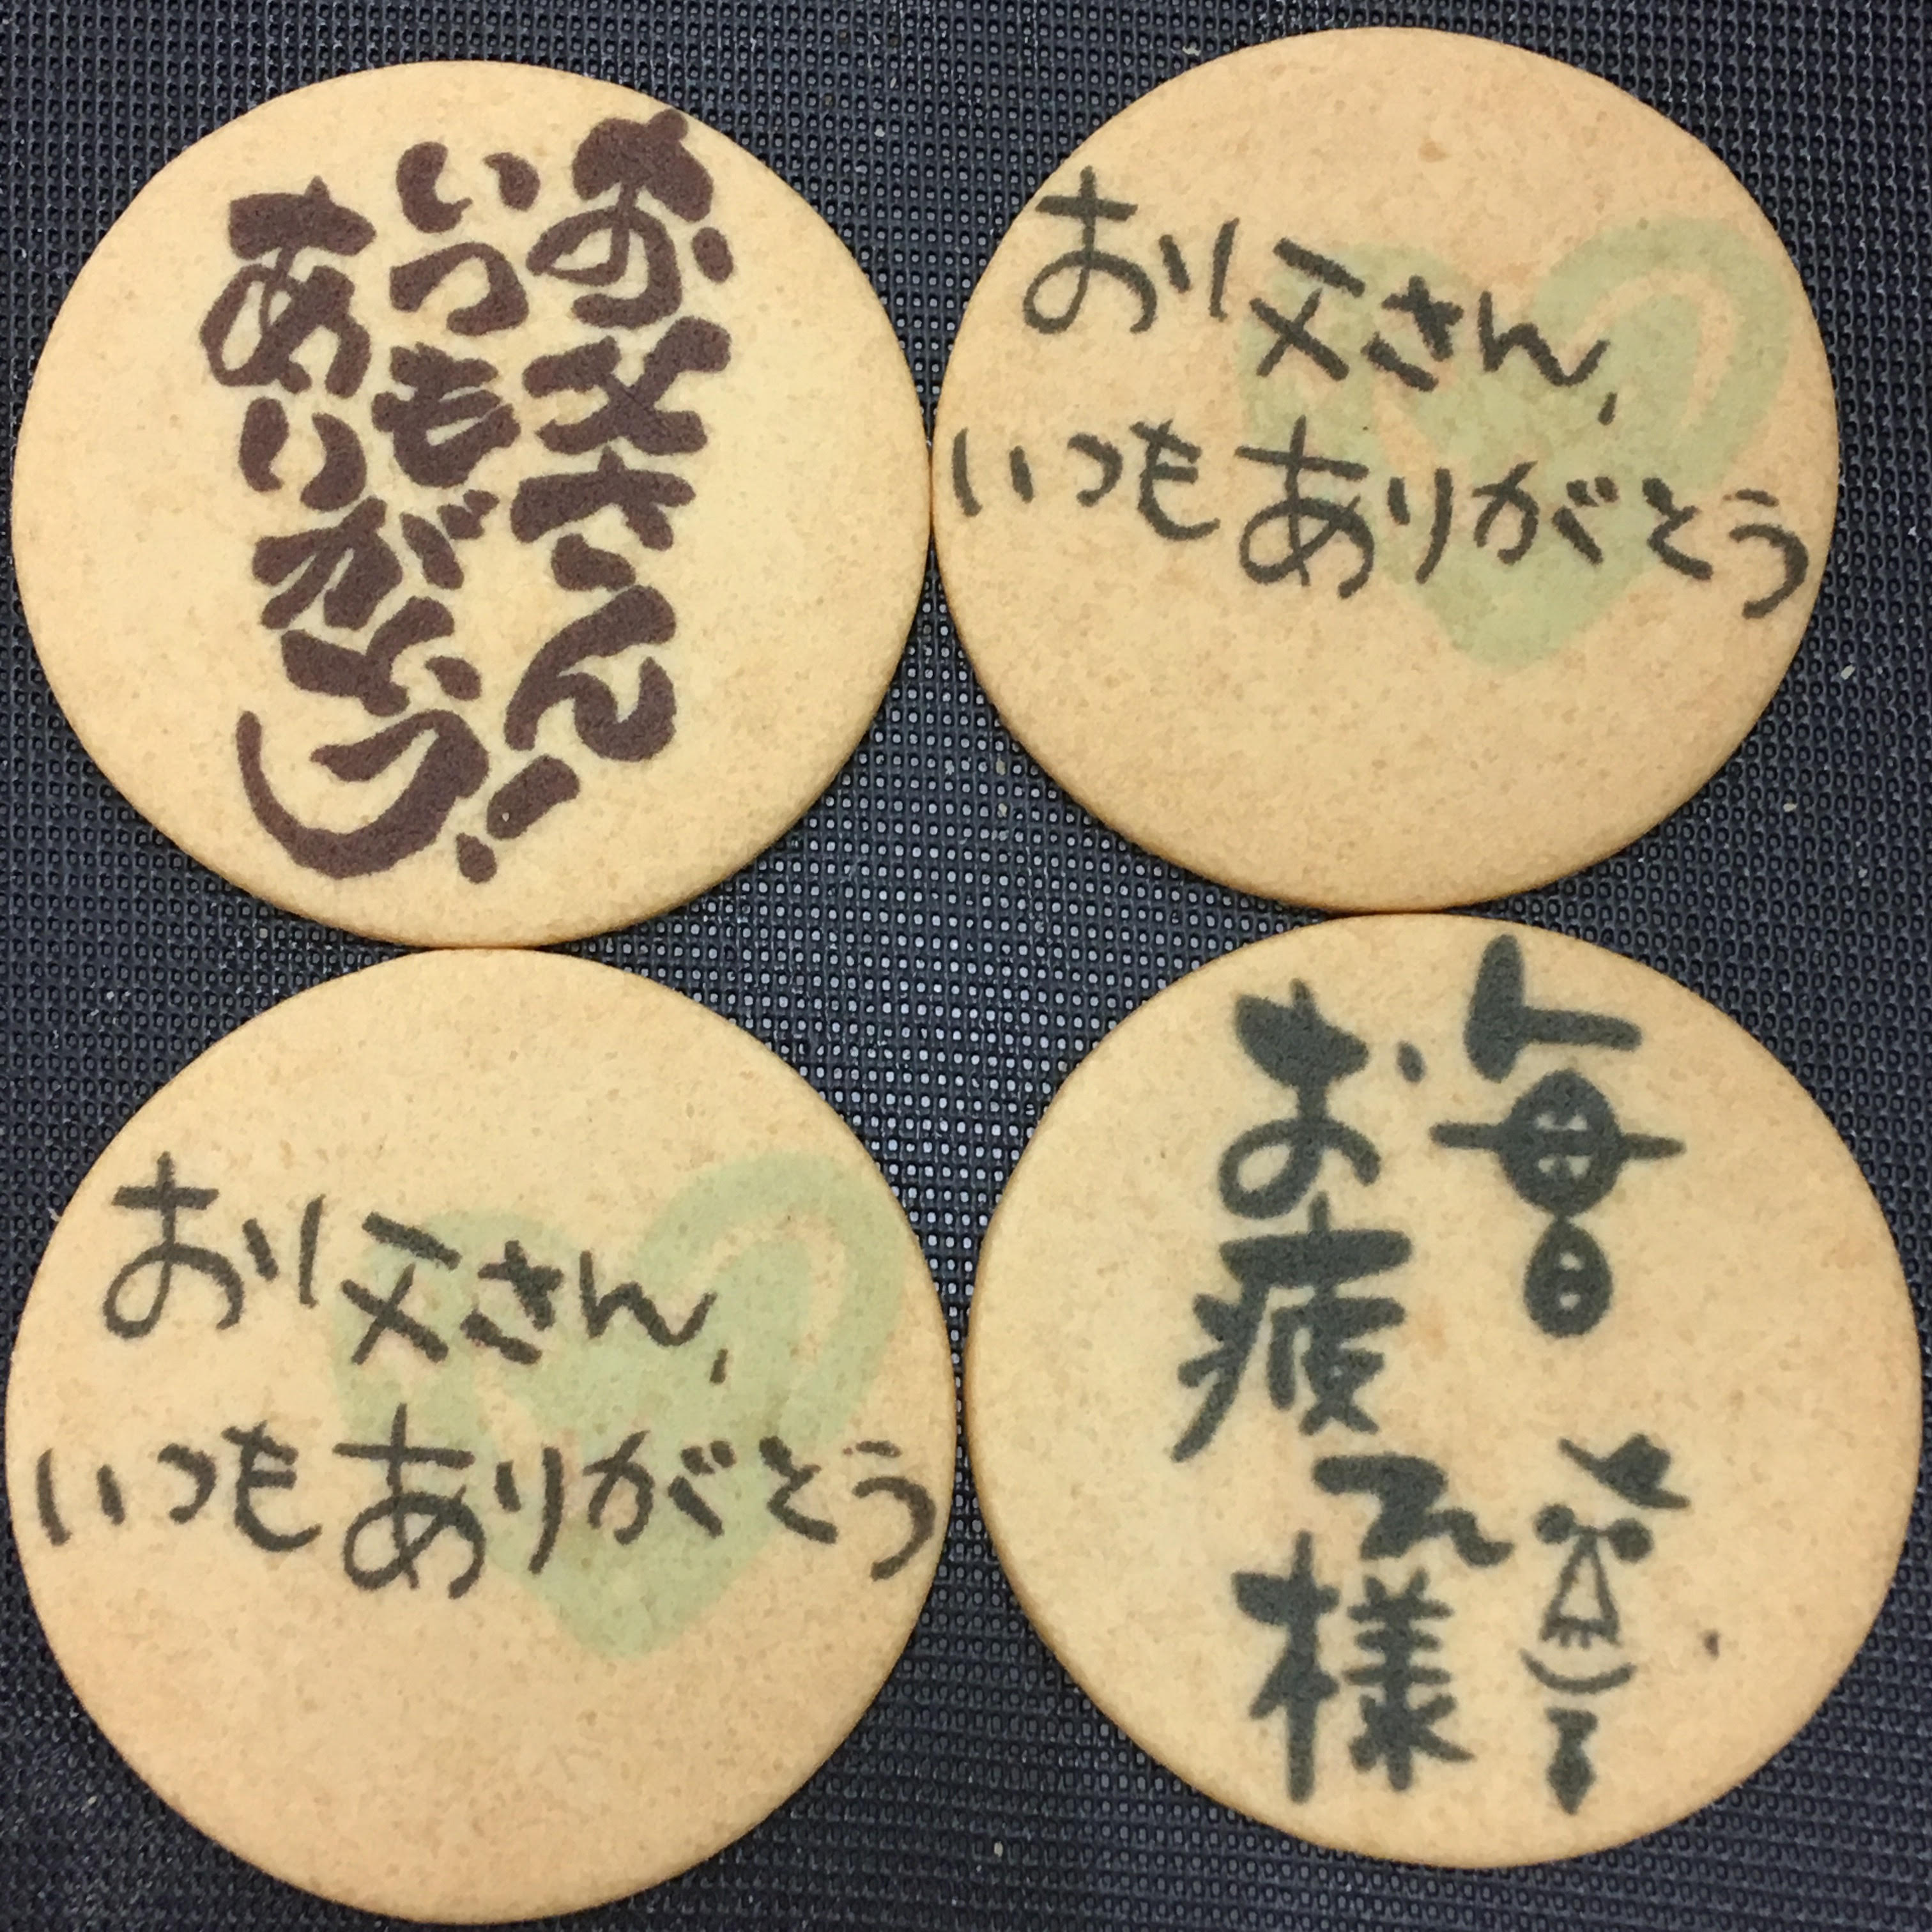 お父さん!
いつも
ありがとう
お父さん,
いつもありがとう
お父さん,
いつもありがとう
毎日
お疲れ様